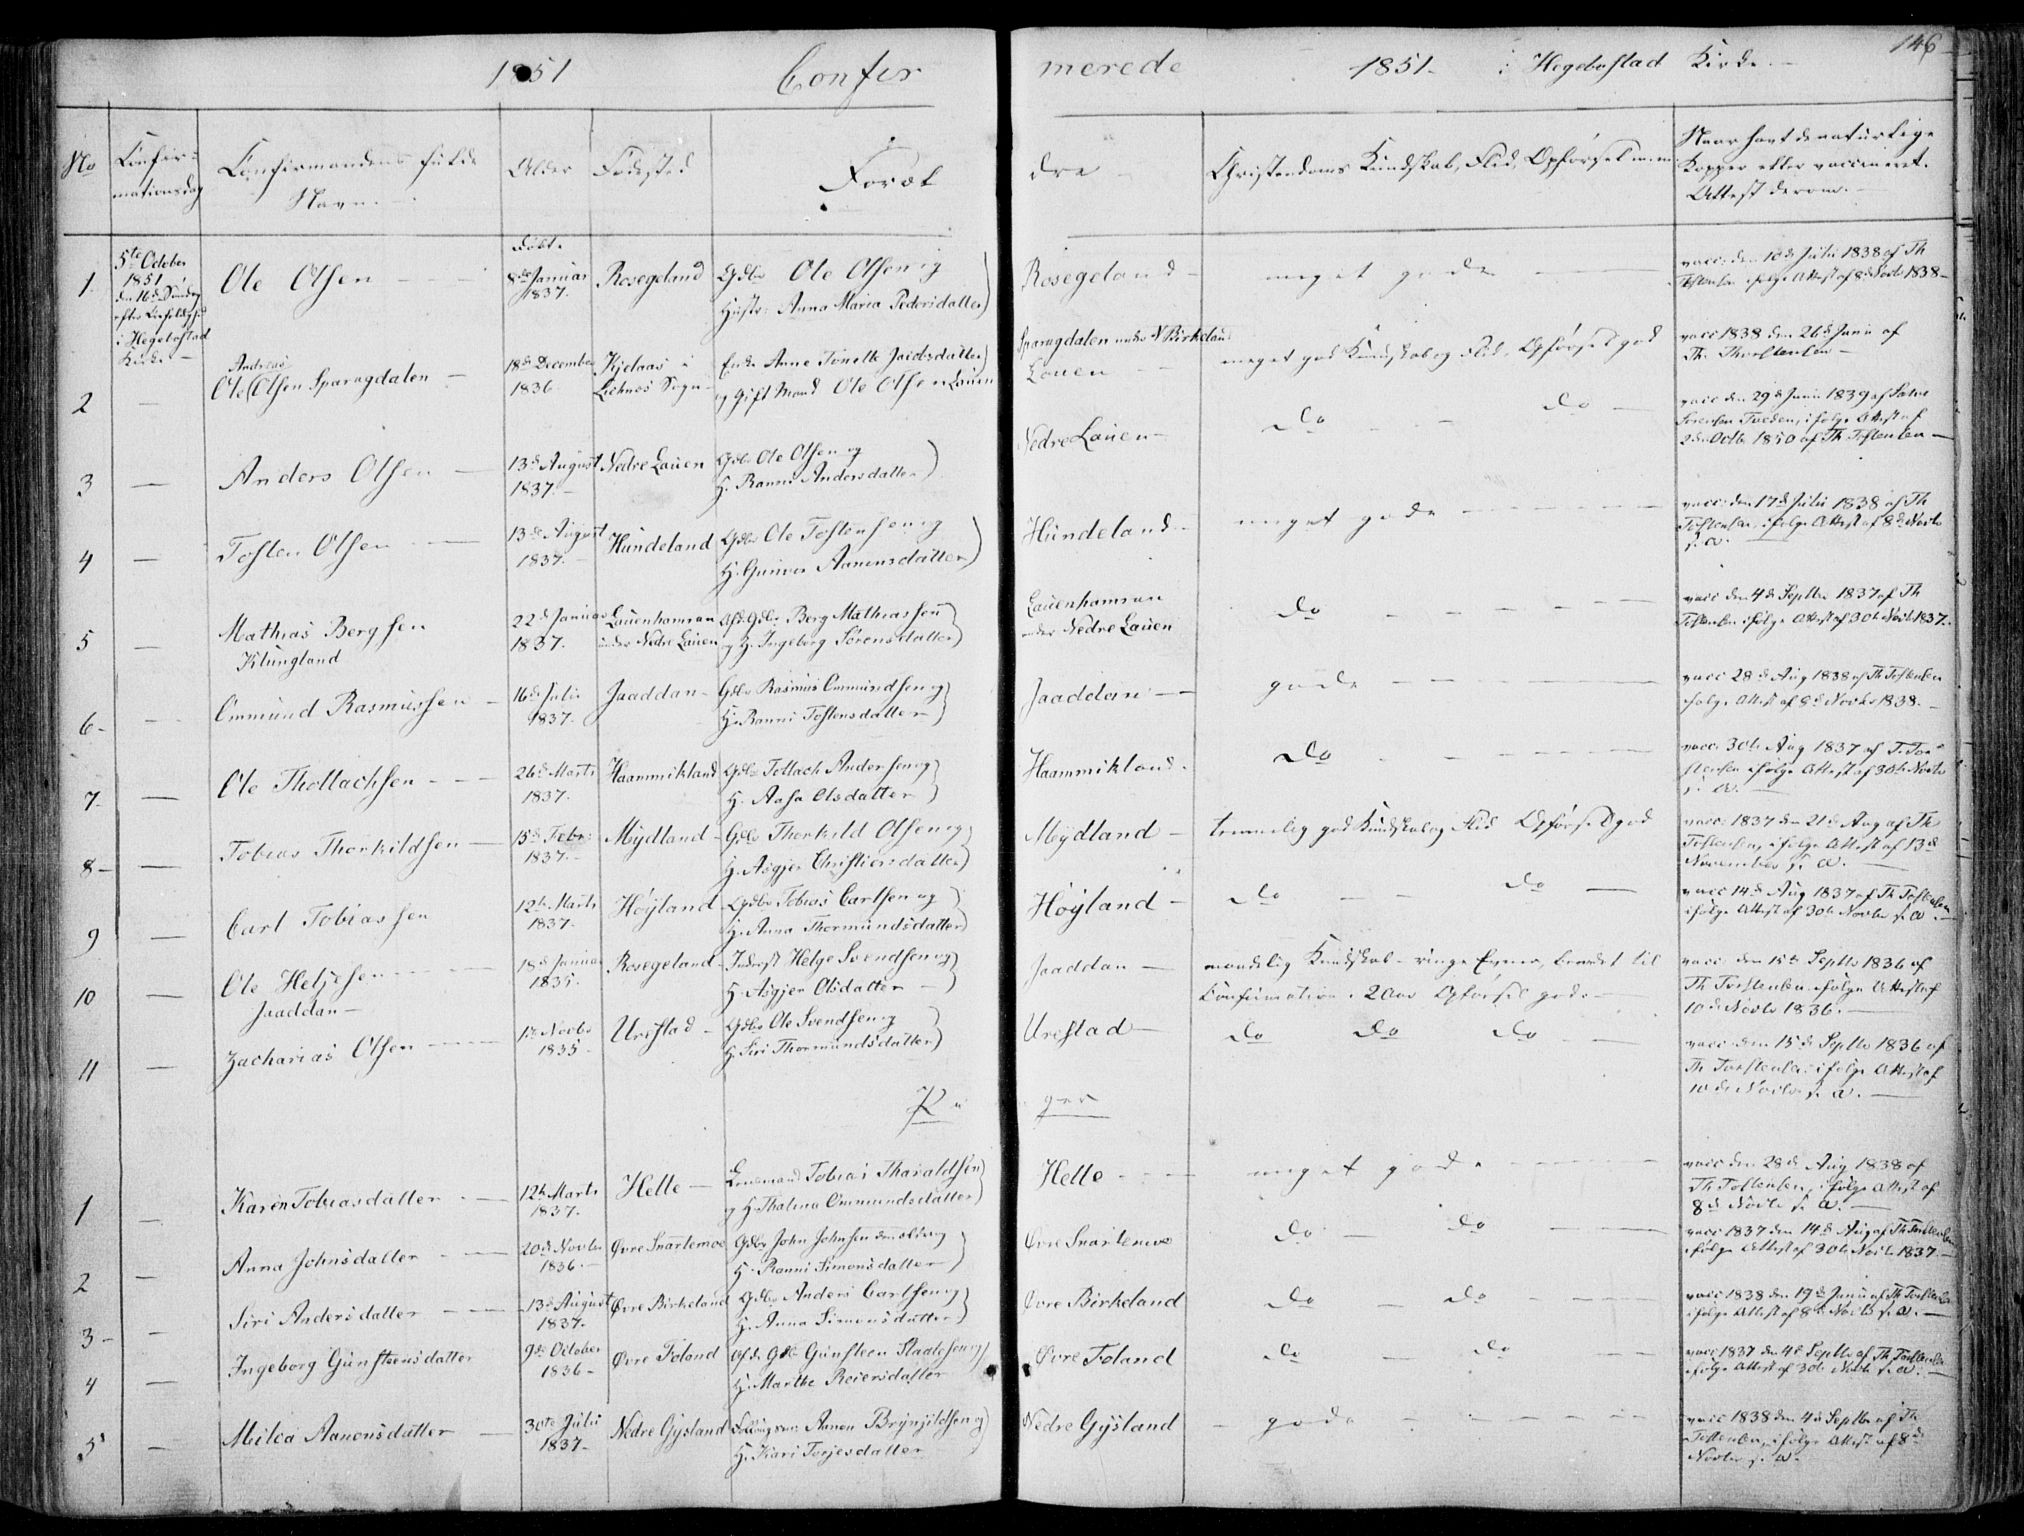 1851 Confirmerede 1851. i Hegebostad Kirke. 146
No
Confirmationsdag
Confirmandens fulde
Navn.
Alder
Fødested
Forældre
Christendoms Kundskab, Flid, Opførsel m.m.
Naar havt de naturlige
Kopper eller vaccineret.
Attest derom.
1
5te October
1851
den 16d Søndag
i Hegebostad
Kirke
Ole Olsen
Døbt.
8de Januar
1837.
Rosegeland
Gdbr Ole Olsen og
Hustr: Anna Maria Pedersdatter
Rosegeland
meget gode
vacc: den 10d Julii 1838 af Th
Tostensen ifølge Attest af 8d Novbr 1838
2
Andreas
Ole Olsen Sparagdalen
18de December
1836
Kjelaas i
Lyhnes Sogn
Enke Anne Tonette Jacobsdatter
og gift Mand Ole Olsen Lauen
Sparagdalen under N Birkeland
Lauen
meget god Kundskab og Flid, Opførsel god
vacc 1838 den 26d Junii af
Th. Thorstensen
3
Anders Olsen
13d August
1837.
Nedre Lauen
Gdbr Ole Olsen og
H. Ranni Andersdatter
Nedre Lauen
Do Do
vacc den 29d Junii 1839 af
Sørensen Tveden, ifølge Attest af
2den Octbr 1850 af Th Tostensen
4
Tosten Olsen
13de August
1837.
Hundeland
Gdbr Ole Tostensen og
H. Gunvor Aanensdatter
Hundeland
meget gode
vacc: den 17d Julii 1838 af Th
Tostensen, ifølge Attest af 8d Novbr
s. A.
5
Mathias Bergsen
Klungland
22d Januar
1837.
Lauenhamran
under Nedre Lauen
Afd: Gdbr Berg Mathiassen
og H. Ingeborg Sørensdatter
Lauenhamran
under Nedre Lauen
Do
vacc den 4d Septbr 1837 af Th
Tostensen ifølge Attest af 30te Novbr 1837.
6
Ommund Rasmussen
16d Julii
1837.
Jaaddan
Gdbr Rasmus Ommundsen og
H. Ranni Tostensdatter
Jaaddan
gode
vacc 28d Aug 1838 af Th Tostensen
ifølge Attest af 8d Novbr 1838.
7
Ole Thollachsen
26d Marts
1837.
Haammikland
Gdbr Tollach Andersen og
H. Aasa Olsdatter
Haammikland
Do
vacc: 30te Aug 1837 af T. Tostensen
ifølge Attest af 30te Novbr
s. A.
8
Tobias Thorkildsen
15d Febr:
1837.
Mydland
Gdbr Thorkild Olsen og
H. Asgjer Christiansdatter
Mydland
temmelig god Kundskab og Flid Opførsel god
vacc: 1837 den 21d Aug af Th
Tostensen, ifølge Attest af 13d
November s. A.
9
Carl Tobiassen
12te Marts
1837.
Høyland
Gdbr Tobias Carlsen og
H. Anna Thormundsdatter
Høyland
Do Do
vacc 14d Aug 1837 af Th Tostensen
ifølge Attest af 30te Novbr s. A.
10
Ole Heljesen
Jaaddan
18d Januar
1835.
Rosegeland
Inderst Helge Svendsen og
H. Asgjer Olsdatter
Jaaddan
maadelig Kundskab - ringe Evner, beredet til
Confirmation i 2 Aar Opførsel gode
vacc: den 15d Septbr 1836 af
Th Torstensen ifølge Attest af
10de Novbr 1836.
11
Zacharias Olsen
1te Novbr
1835
Urestad
Gdbr Ole Svendsen og
H. Siri Thormundsdatter
Urestad
Do Do Do
vacc: den 15d Septbr 1836 af
Th Torstensen ifølge Attest af
10de Novbr s. A.
Piger
1
Karen Tobiasdatter
12te Marts
1837.
Helle
Lensmand Tobias Tharaldsen
og H. Thalena Ommundsdatter
Helle
meget gode
vacc den 28d Aug 1838 af
Th Tostensen, ifølge Attest af
8d Novbr s. A.
2
Anna Johnsdatter
20d Novbr
1836.
Øvre Snartemoe
Gdbr John Johnsen den ældre og
H. Ranni Simonsdatter
Øvre Snartemoe
Do Do
vacc 1837 den 14d Aug af Th Tostensen
ifølge Attest af 30te Novbr 1837.
3
Siri Andersdatter
13d August
1837.
Øvre Birkeland
Gdbr Anders Carlsen og
H. Anna Simonsdatter
Øvre Birkeland
Do Do
vacc 1838 den 19d Junii af Th Tostensen
ifølge Attest af 8d Novbr s. A.
4
Ingeborg Gunsteensdatter
9de October
1836
Øvre Føland
Afd: Gdbr Gunsteen Staalesen og
H. Marthe Reiersdatter
Øvre Føland
Do Do
vacc 1837 den 4d Septbr af Th Tostensen
ifølge Attest af 30te Novbr s. A.
5
Milca Aanensdatter
30te Julii
1837
Nedre Gysland
Aanen Brynjildsen og
H. Kari Torjesdatter
Nedre Gysland
gode
vacc 1838 den 4d Septbr af Th
Tostensen, ifølge Attest af 8de
Novbr s. A.